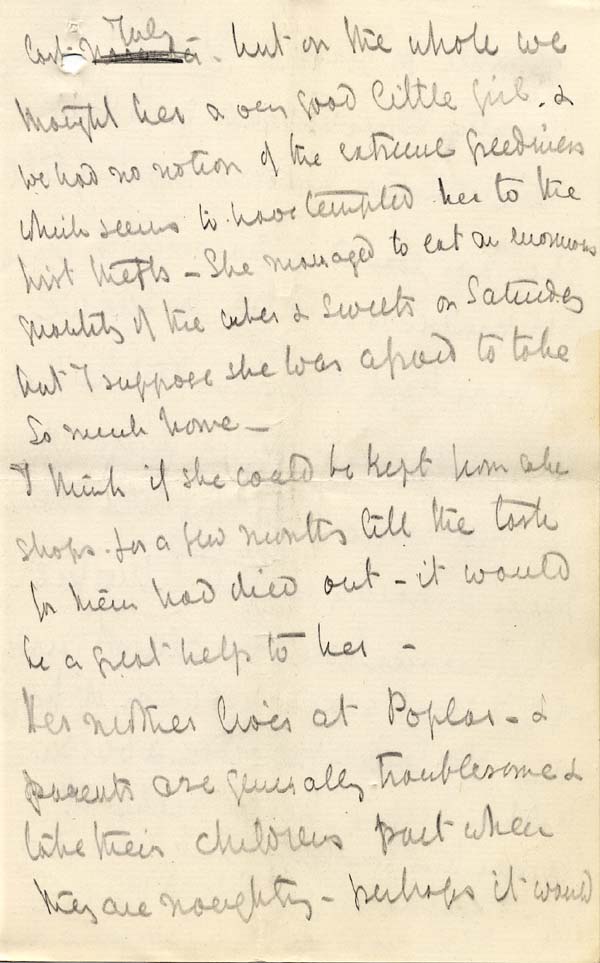 last July. but on the whole we
thought her a very good little girl. &
we had no notion of the extreme greediness
which seems to have tempted her to the
first thefts - She managed to eat an enormous
quantity of the cakes & sweets on Saturday
but I suppose she was afraid to take
so much home -
I think if she could be kept from cake
shops. for a few months till the taste
for them had died out - it would
be a great help to her -
Her mother lives at Poplar - &
parents are generally troublesome &
take their childrens part when
they are naughty - perhaps it would